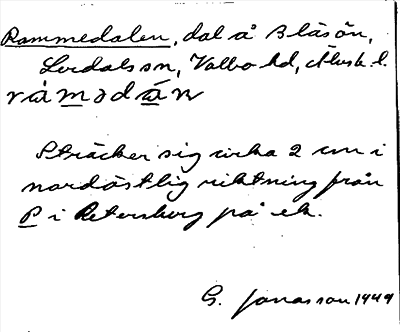 Rammedalen, dal å Blåsön,
Lerdals sn, Valbo hd, Älvsb. l.
ràmədán
Sträcker sig cirka 2 cm i
nordöstlig riktning från
P i Petersborg på ek.
G. Jonasson 1949